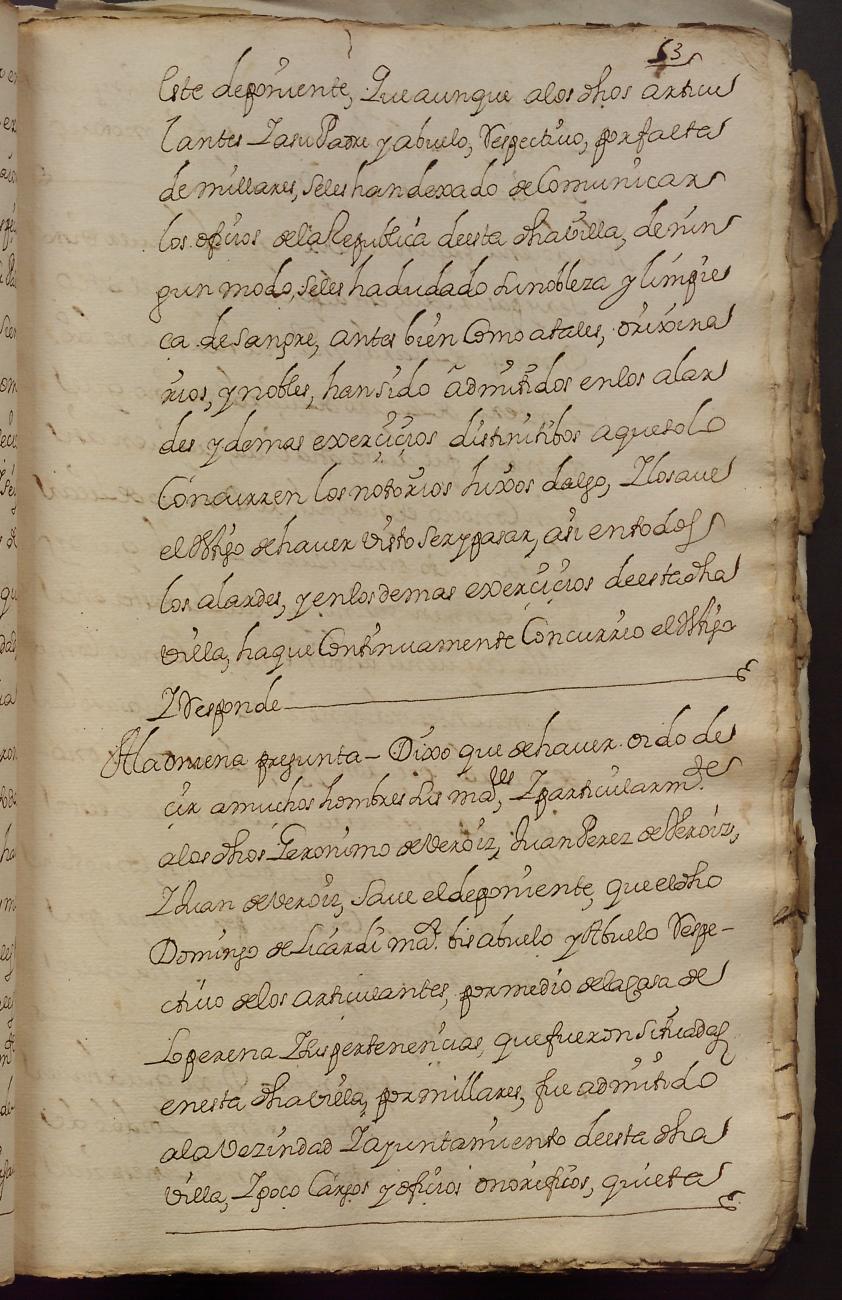 53
este deponiente, Que aunque a los dhos articu
lantes Y a su Padre y abuelo, Respectivo, por falta
de millares, seles han dexado de Comunicar
los ofiçios dela Republica de esta dha villa, de nin
gun modo, seles ha dudado su nobleza y limpie
ça de sangre, antes bien Como a tales, orixina
rios, y nobles, han sido admitidos en los alar
des y demas exerçiçios distinitibos a que solo
Concurren los notorios hixos dalgo, Y lo save
el tgo de haver visto ser y pasar, asi en todos
los alardes, y en los demas exerçiçios de esta dha
villa, ha que Continuamente Concurrio el tgo
Y Responde
A la onzena pregunta – Dixo que de haver oido de
çir a muchos hombres sus maᵈ, res Y particularmᵗᵉ
a los dhos Geronimo de Veroiz, Juan Perez de Veroiz,
Y Juan de Veroiz, Save el deponiente, que el dho
Domingo de Licardi maʳ. bisabuelo y Abuelo Respe–
ctivo de los articulantes, por medio dela Casa de
Loperena Y sus pertenençias, que fueron situadas
en esta dha villa, por millares, fue admitido
a la Vezindad Y ayuntamiento de esta dha
villa, Y goço Cargos y ofiçios onorifiços, quieta